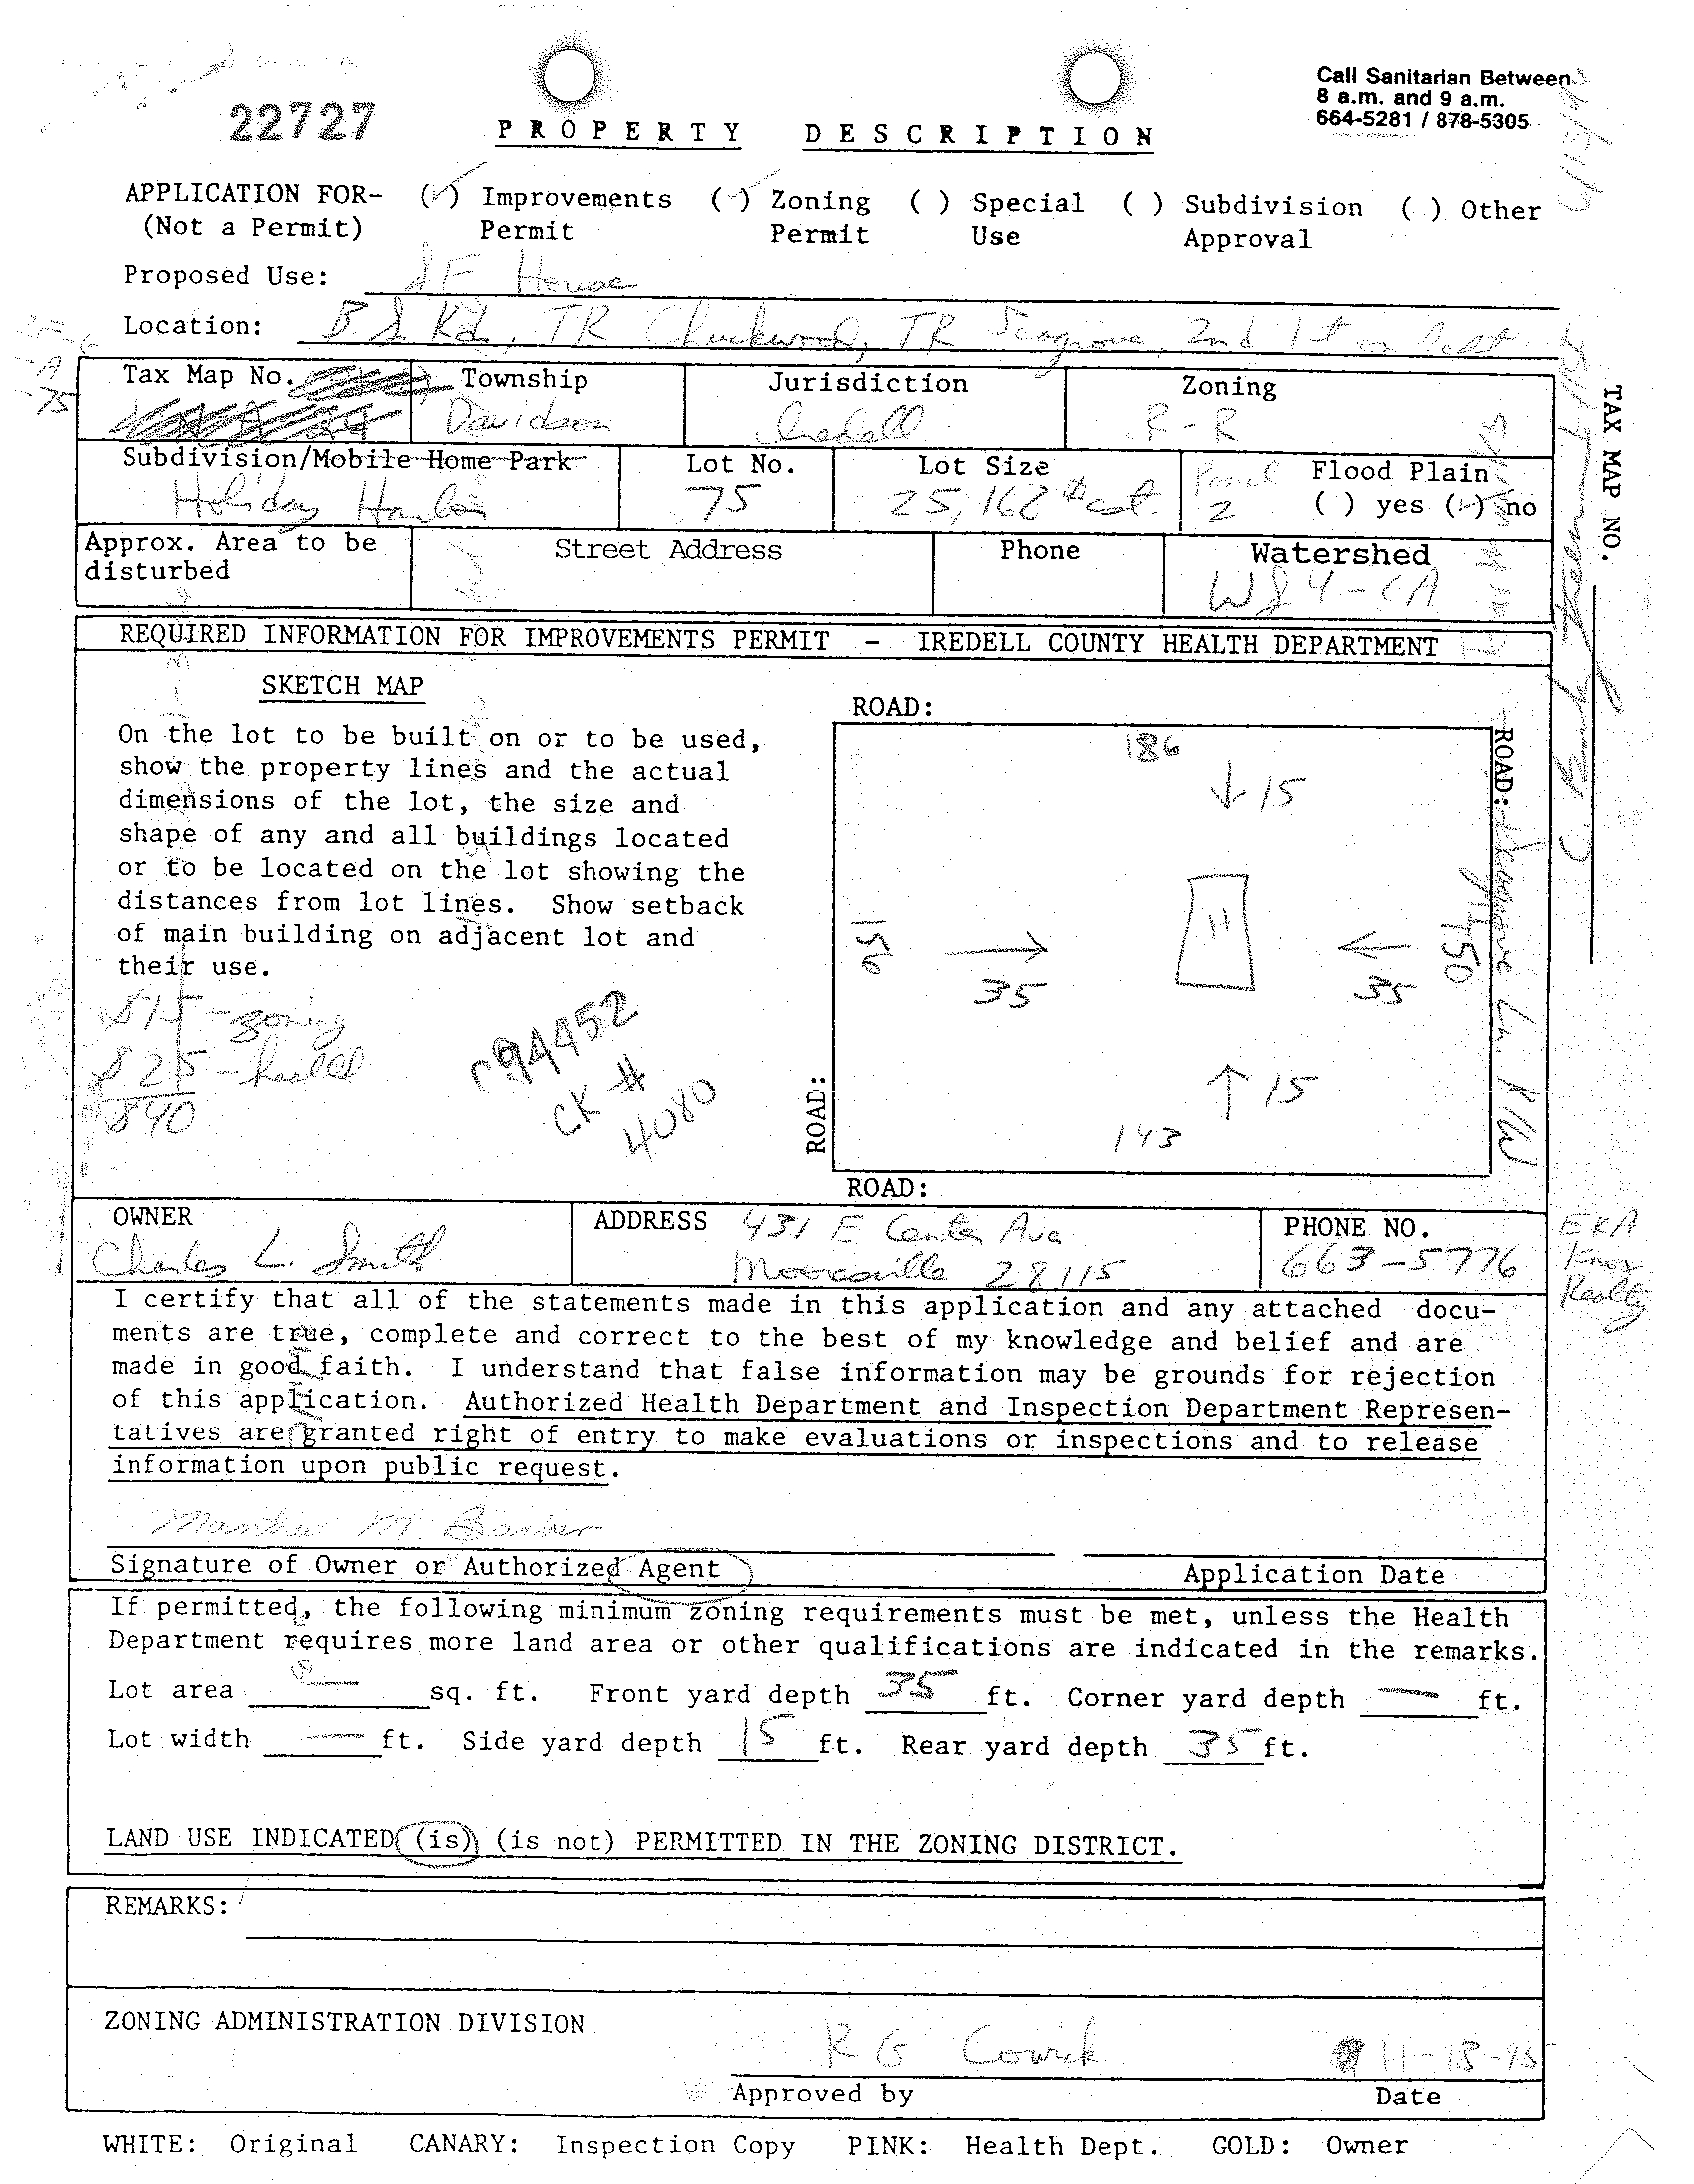 Call Sanitarian Between
8 a.m. and 9 a.m.
664-5281 / 878-5305
22727
PROPERTY DESCRIPTION
APPLICATION FOR- (✓) Improvements (✓) Zoning ( ) Special ( ) Subdivision ( ) Other
(Not a Permit) Permit Permit Use Approval
Proposed Use: SF House
Location: TR TR 2nd lt on left
Tax Map No. Township Jurisdiction Zoning
Davidson Iredell R-R
Subdivision/Mobile Home Park Lot No. Lot Size Panel Flood Plain
Holiday Harbor 75 25,162 2 ( ) yes (✓) no
Approx. Area to be Street Address Phone Watershed
disturbed
WS4-CA
TAX MAP NO.
REQUIRED INFORMATION FOR IMPROVEMENTS PERMIT - IREDELL COUNTY HEALTH DEPARTMENT
SKETCH MAP
On the lot to be built on or to be used,
show the property lines and the actual
dimensions of the lot, the size and
shape of any and all buildings located
or to be located on the lot showing the
distances from lot lines. Show setback
of main building on adjacent lot and
their use.
$15 - zoning
$25 - health
$40
C94452
CK #
4080
ROAD:
186
↓ 15
ROAD:
H
156
→
35
←
35
150
↑ 15
143
Ln. R/W
ROAD:
ROAD:
OWNER ADDRESS 431 E Center Ave PHONE NO.
Charles L. Smith Mooresville 28115 663-5776
Knox
Realty
I certify that all of the statements made in this application and any attached docu-
ments are true, complete and correct to the best of my knowledge and belief and are
made in good faith. I understand that false information may be grounds for rejection
of this application. Authorized Health Department and Inspection Department Represen-
tatives are granted right of entry to make evaluations or inspections and to release
information upon public request.
Martha M. Barber
Signature of Owner or Authorized Agent Application Date
If permitted, the following minimum zoning requirements must be met, unless the Health
Department requires more land area or other qualifications are indicated in the remarks.
Lot area — sq. ft. Front yard depth 35 ft. Corner yard depth — ft.
Lot width — ft. Side yard depth 15 ft. Rear yard depth 35 ft.
LAND USE INDICATED (is) (is not) PERMITTED IN THE ZONING DISTRICT.
REMARKS:
ZONING ADMINISTRATION DIVISION
R G 11-13-95
Approved by Date
WHITE: Original CANARY: Inspection Copy PINK: Health Dept. GOLD: Owner